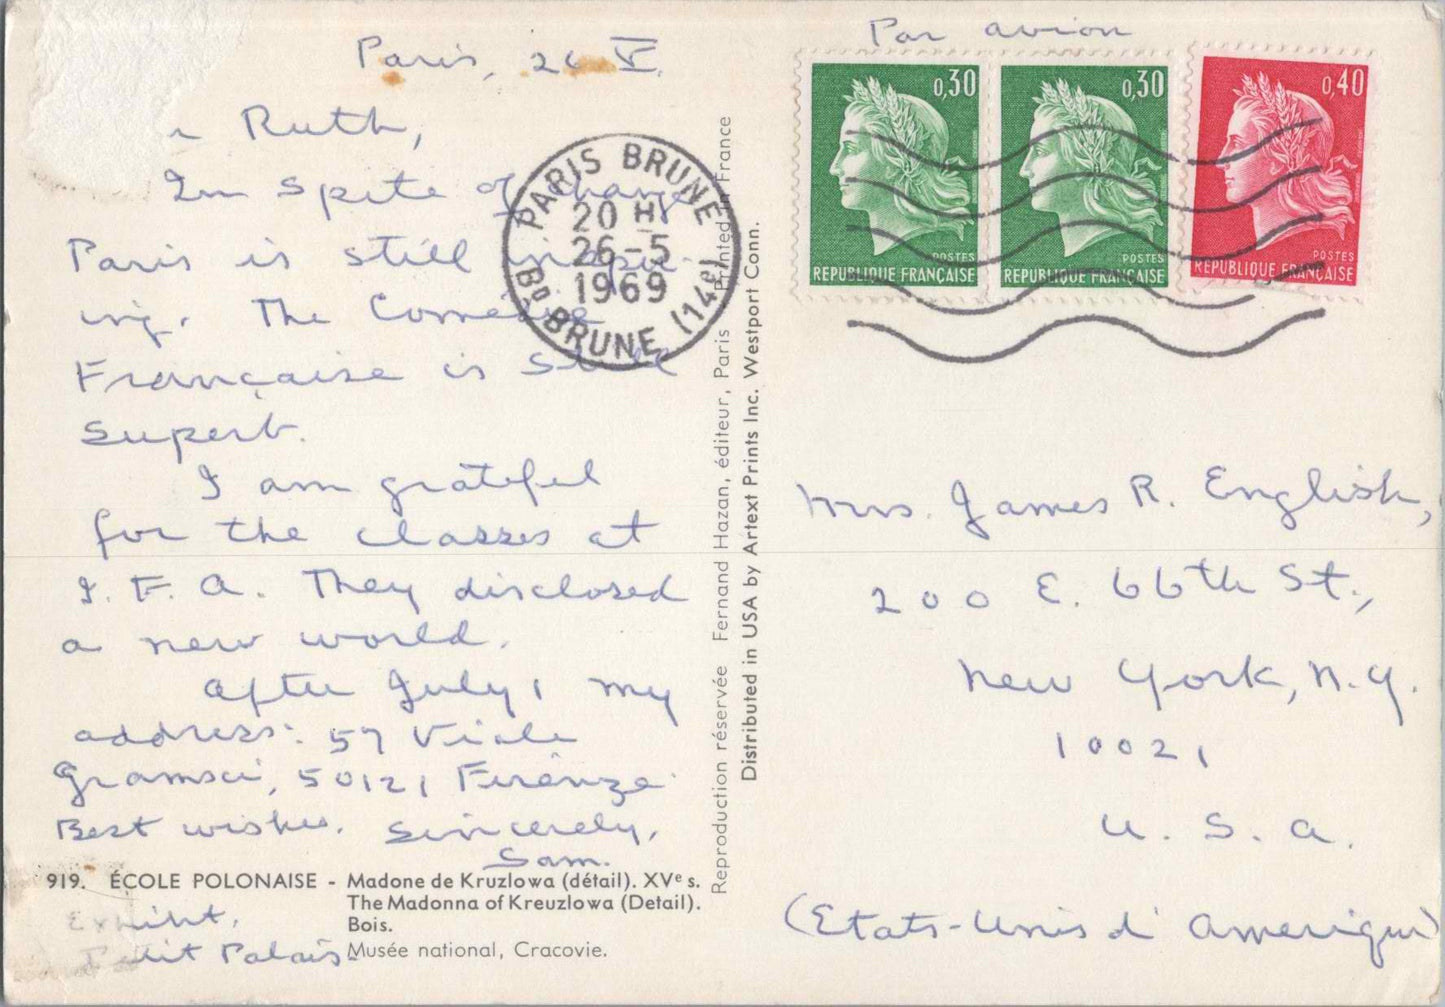 Paris, 26 V.
Ruth,
In spite of change
Paris is still inspir-
ing. The Comédie
Française is still
superb.
I am grateful
for the classes at
I. F. A. They disclosed
a new world.
After July 1 my
address: 57 Viale
Gramsci, 50121 Firenze.
Best wishes. Sincerely,
Sam.
919. ÉCOLE POLONAISE - Madone de Kruzlowa (détail). XVe s.
The Madonna of Kreuzlowa (Detail).
Bois.
Musée national, Cracovie.
Exhibit,
Petit Palais.
PARIS BRUNE
20 H
26-5
1969
Bd BRUNE (14e)
Reproduction réservée Fernand Hazan, éditeur, Paris Printed in France
Distributed in USA by Artext Prints Inc. Westport Conn.
Par avion
0,30
POSTES
REPUBLIQUE FRANÇAISE
0,30
POSTES
REPUBLIQUE FRANÇAISE
0,40
POSTES
REPUBLIQUE FRANÇAISE
Mrs. James R. English,
200 E. 66th St.,
New York, N.Y.
10021
U. S. A.
(Etats-Unis d'Amerique)